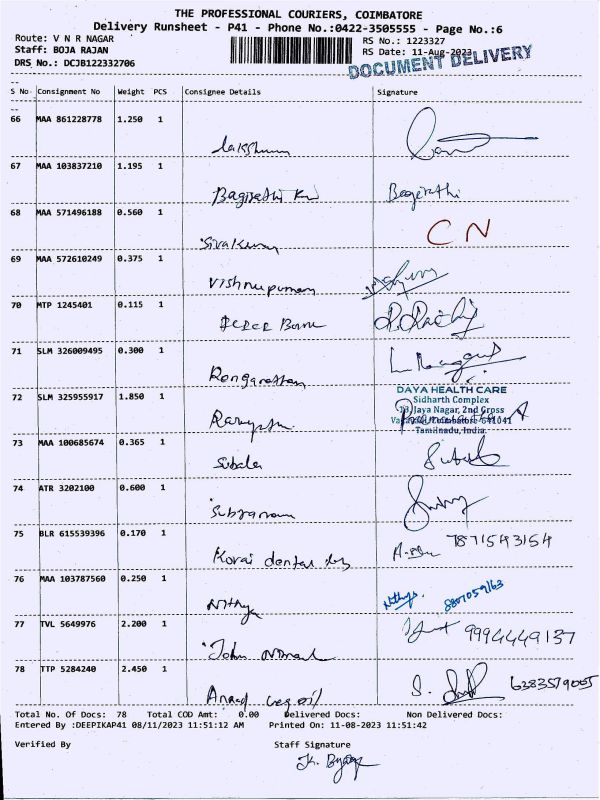 THE PROFESSIONAL COURIERS, COIMBATORE
Delivery Runsheet - P41 - Phone No.:0422-3505555 - Page No.:6
Route: V N R NAGAR RS No.: 1223327
Staff: BOJA RAJAN RS Date: 11-Aug-2023
DRS No.: DCJB122332706 DOCUMENT DELIVERY
S No Consignment No Weight PCS Consignee Details Signature
66 MAA 861228778 1.250 1
Lakshmi
67 MAA 103837210 1.195 1
Bagirathi Bagirathi
68 MAA 571496188 0.560 1
Sivakumar CN
69 MAA 572610249 0.375 1
Vishnupuram
70 MTP 1245401 0.115 1
71 SLM 326009495 0.300 1
Renganathan
72 SLM 325955917 1.850 1 DAYA HEALTH CARE
Sidharth Complex
Jaya Nagar, 2nd Cross
Coimbatore 641041
Tamilnadu, India.
73 MAA 100685674 0.365 1
Subala
74 ATR 3202100 0.600 1
75 BLR 615539396 0.170 1
Kovai dental 7871543154
76 MAA 103787560 0.250 1
Nithya Nithya. 8807059163
77 TVL 5649976 2.200 1
John 9994449137
78 TTP 5284240 2.450 1
Anand veg oil S. 6383579065
Total No. Of Docs: 78 Total COD Amt: 0.00 Delivered Docs: Non Delivered Docs:
Entered By :DEEPIKAP41 08/11/2023 11:51:12 AM Printed On: 11-08-2023 11:51:42
Verified By Staff Signature